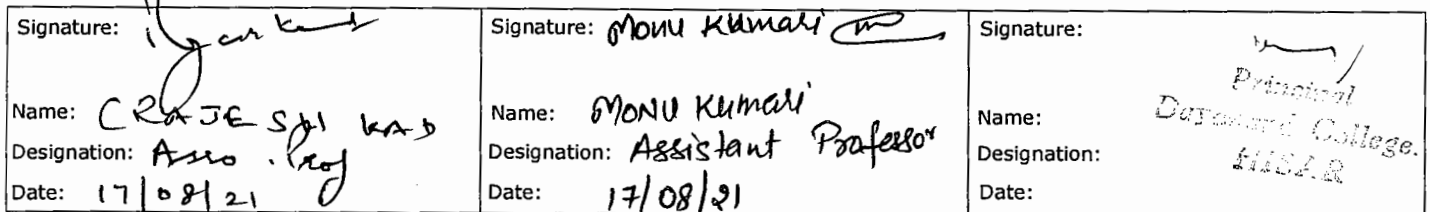 Signature:
Name: (RAJESH KAD
Designation: Asso. Prof
Date: 17/08/21
Signature: Monu Kumari
Name: MONU Kumari
Designation: Assistant Professor
Date: 17/08/21
Signature:
Name:
Designation:
Date:
Principal
Dayanand College.
HISAR